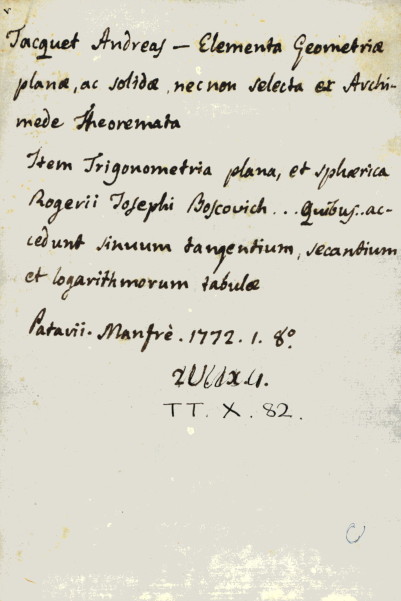 Tacquet Andreas — Elementa Geometriæ
planæ, ac solidæ, necnon selecta ex Archi-
mede Theoremata
Item Trigonometria plana, et sphærica
Rogerii Josephi Boscovich ... Quibus .. ac-
cedunt sinuum tangentium, secantium
et logarithmorum tabulæ
Patavii. Manfrè. 1772. 1. 8º
TT. X. 82.